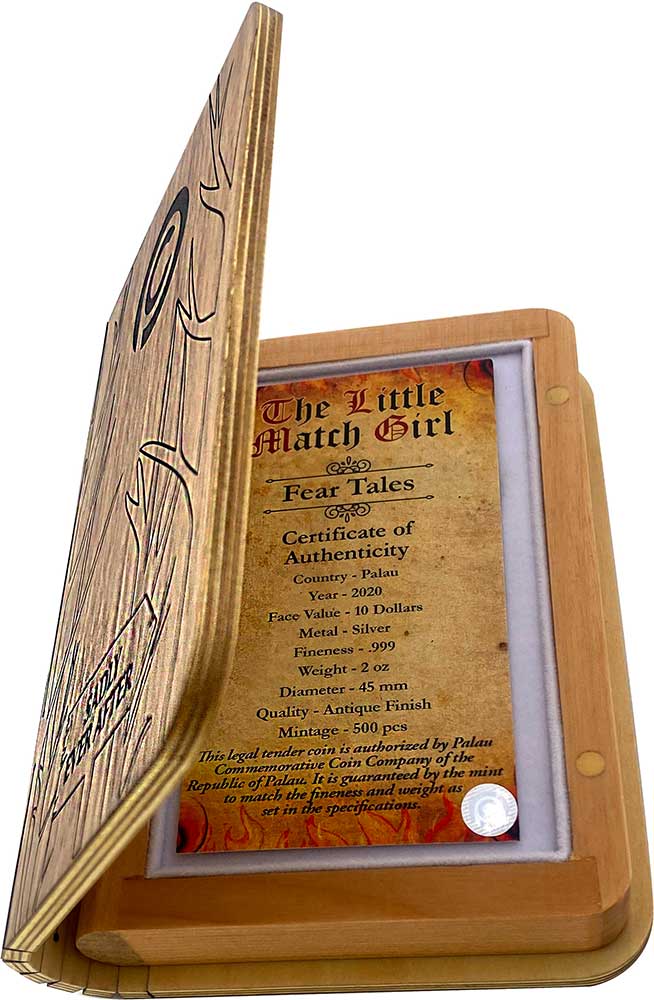 The Little
Match Girl
Fear Tales
Certificate of
Authenticity
Country - Palau
Year - 2020
Face Value - 10 Dollars
Metal - Silver
Fineness - .999
Weight - 2 oz
Diameter - 45 mm
Quality - Antique Finish
Mintage - 500 pcs
This legal tender coin is authorized by Palau
Commemorative Coin Company of the
Republic of Palau. It is guaranteed by the mint
to match the fineness and weight as
set in the specifications.
EVER AFTER